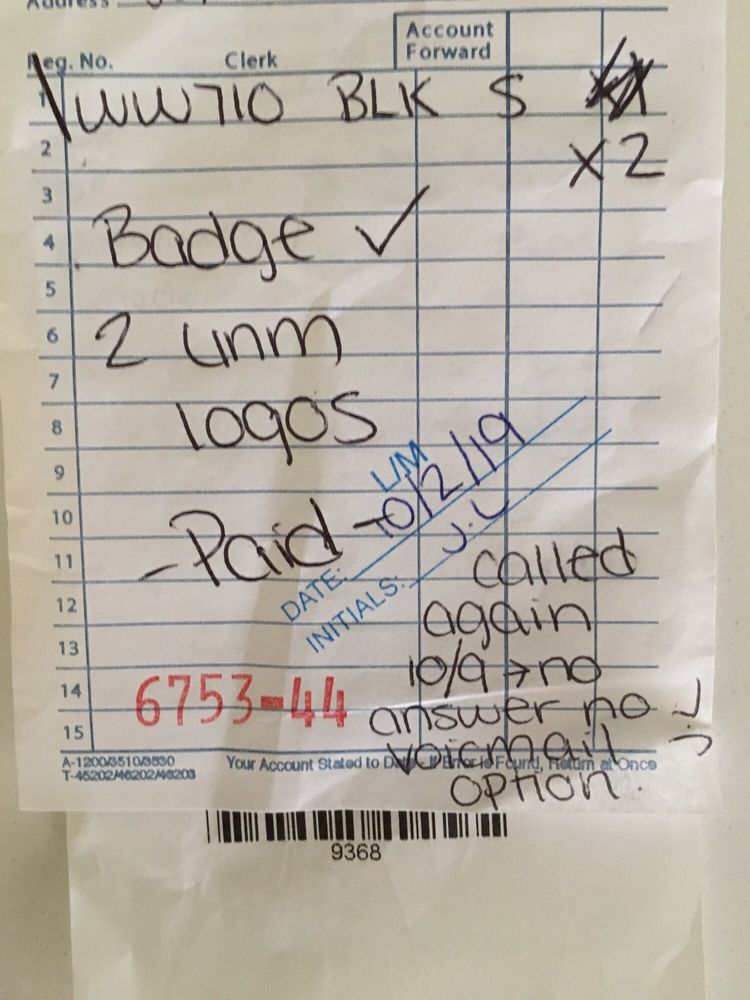 Address
Reg. No. Clerk Account Forward
1 WW710 BLK S
2 X2
3
4 Badge ✓
5
6 2 unm
7
8 logos
9
L/M
10 -Paid -
DATE: 10/2/19
INITIALS: J.L
11 called
12 again
13 10/9 → no
14 answer no J.L
15 voicmail
option.
6753-44
A-1200/3510/3530
T-45202/46202/46203
Your Account Stated to Date - If Error is Found, Return at Once
9368